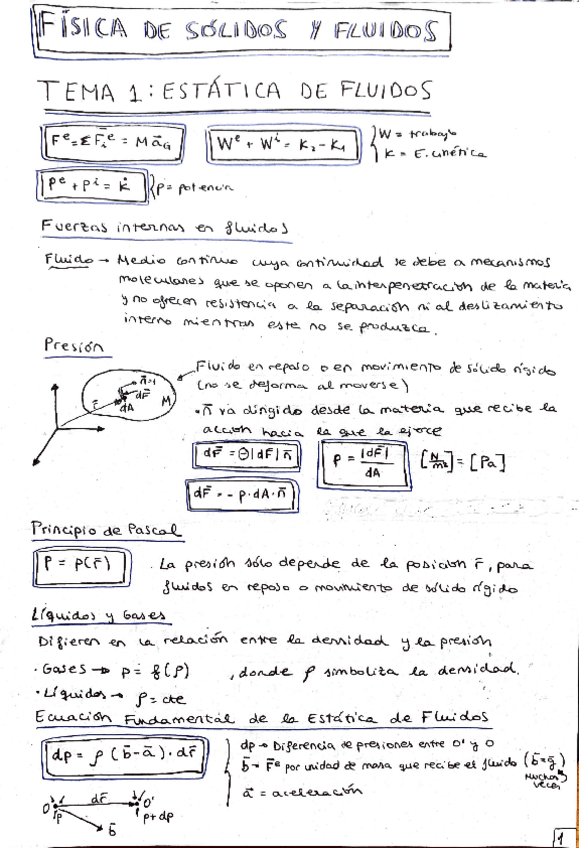 FÍSICA DE SÓLIDOS Y FLUIDOS
TEMA 1: ESTÁTICA DE FLUIDOS
F^e = Σ F_i^e = M a_G
W^e + W^i = K_2 - K_1
W = trabajo
K = E. cinética
P^e + P^i = K̇
P = potencia
Fuerzas internas en fluidos
Fluido → Medio continuo cuya continuidad se debe a mecanismos
moleculares que se oponen a la interpenetración de la materia
y no ofrecen resistencia a la separación ni al deslizamiento
interno mientras este no se produzca.
Presión
Fluido en reposo o en movimiento de sólido rígido
(no se deforma al moverse)
n̄=1
dF̄
r̄
dA
M
· n̄ va dirigido desde la materia que recibe la
acción hacia la que la ejerce
dF̄ = ⊖|dF|n̄
p = |dF̄| / dA
[N/m²] = [Pa]
dF̄ = - p · dA · n̄
Principio de Pascal
P = P(r̄)
. La presión sólo depende de la posición r̄, para
fluidos en reposo o movimiento de sólido rígido
Líquidos y Gases
Difieren en la relación entre la densidad y la presión
· Gases → p = f(ρ) , donde ρ simboliza la densidad.
· Líquidos → ρ = cte
Ecuación Fundamental de la Estática de Fluidos
dp = ρ (b̄ - ā) · dr̄
dp → Diferencia de presiones entre O' y O
b̄ = F̄^e por unidad de masa que recibe el fluido (b̄ = ḡ muchas veces)
ā = aceleración
O
dr̄
O'
p
p + dp
b̄
1